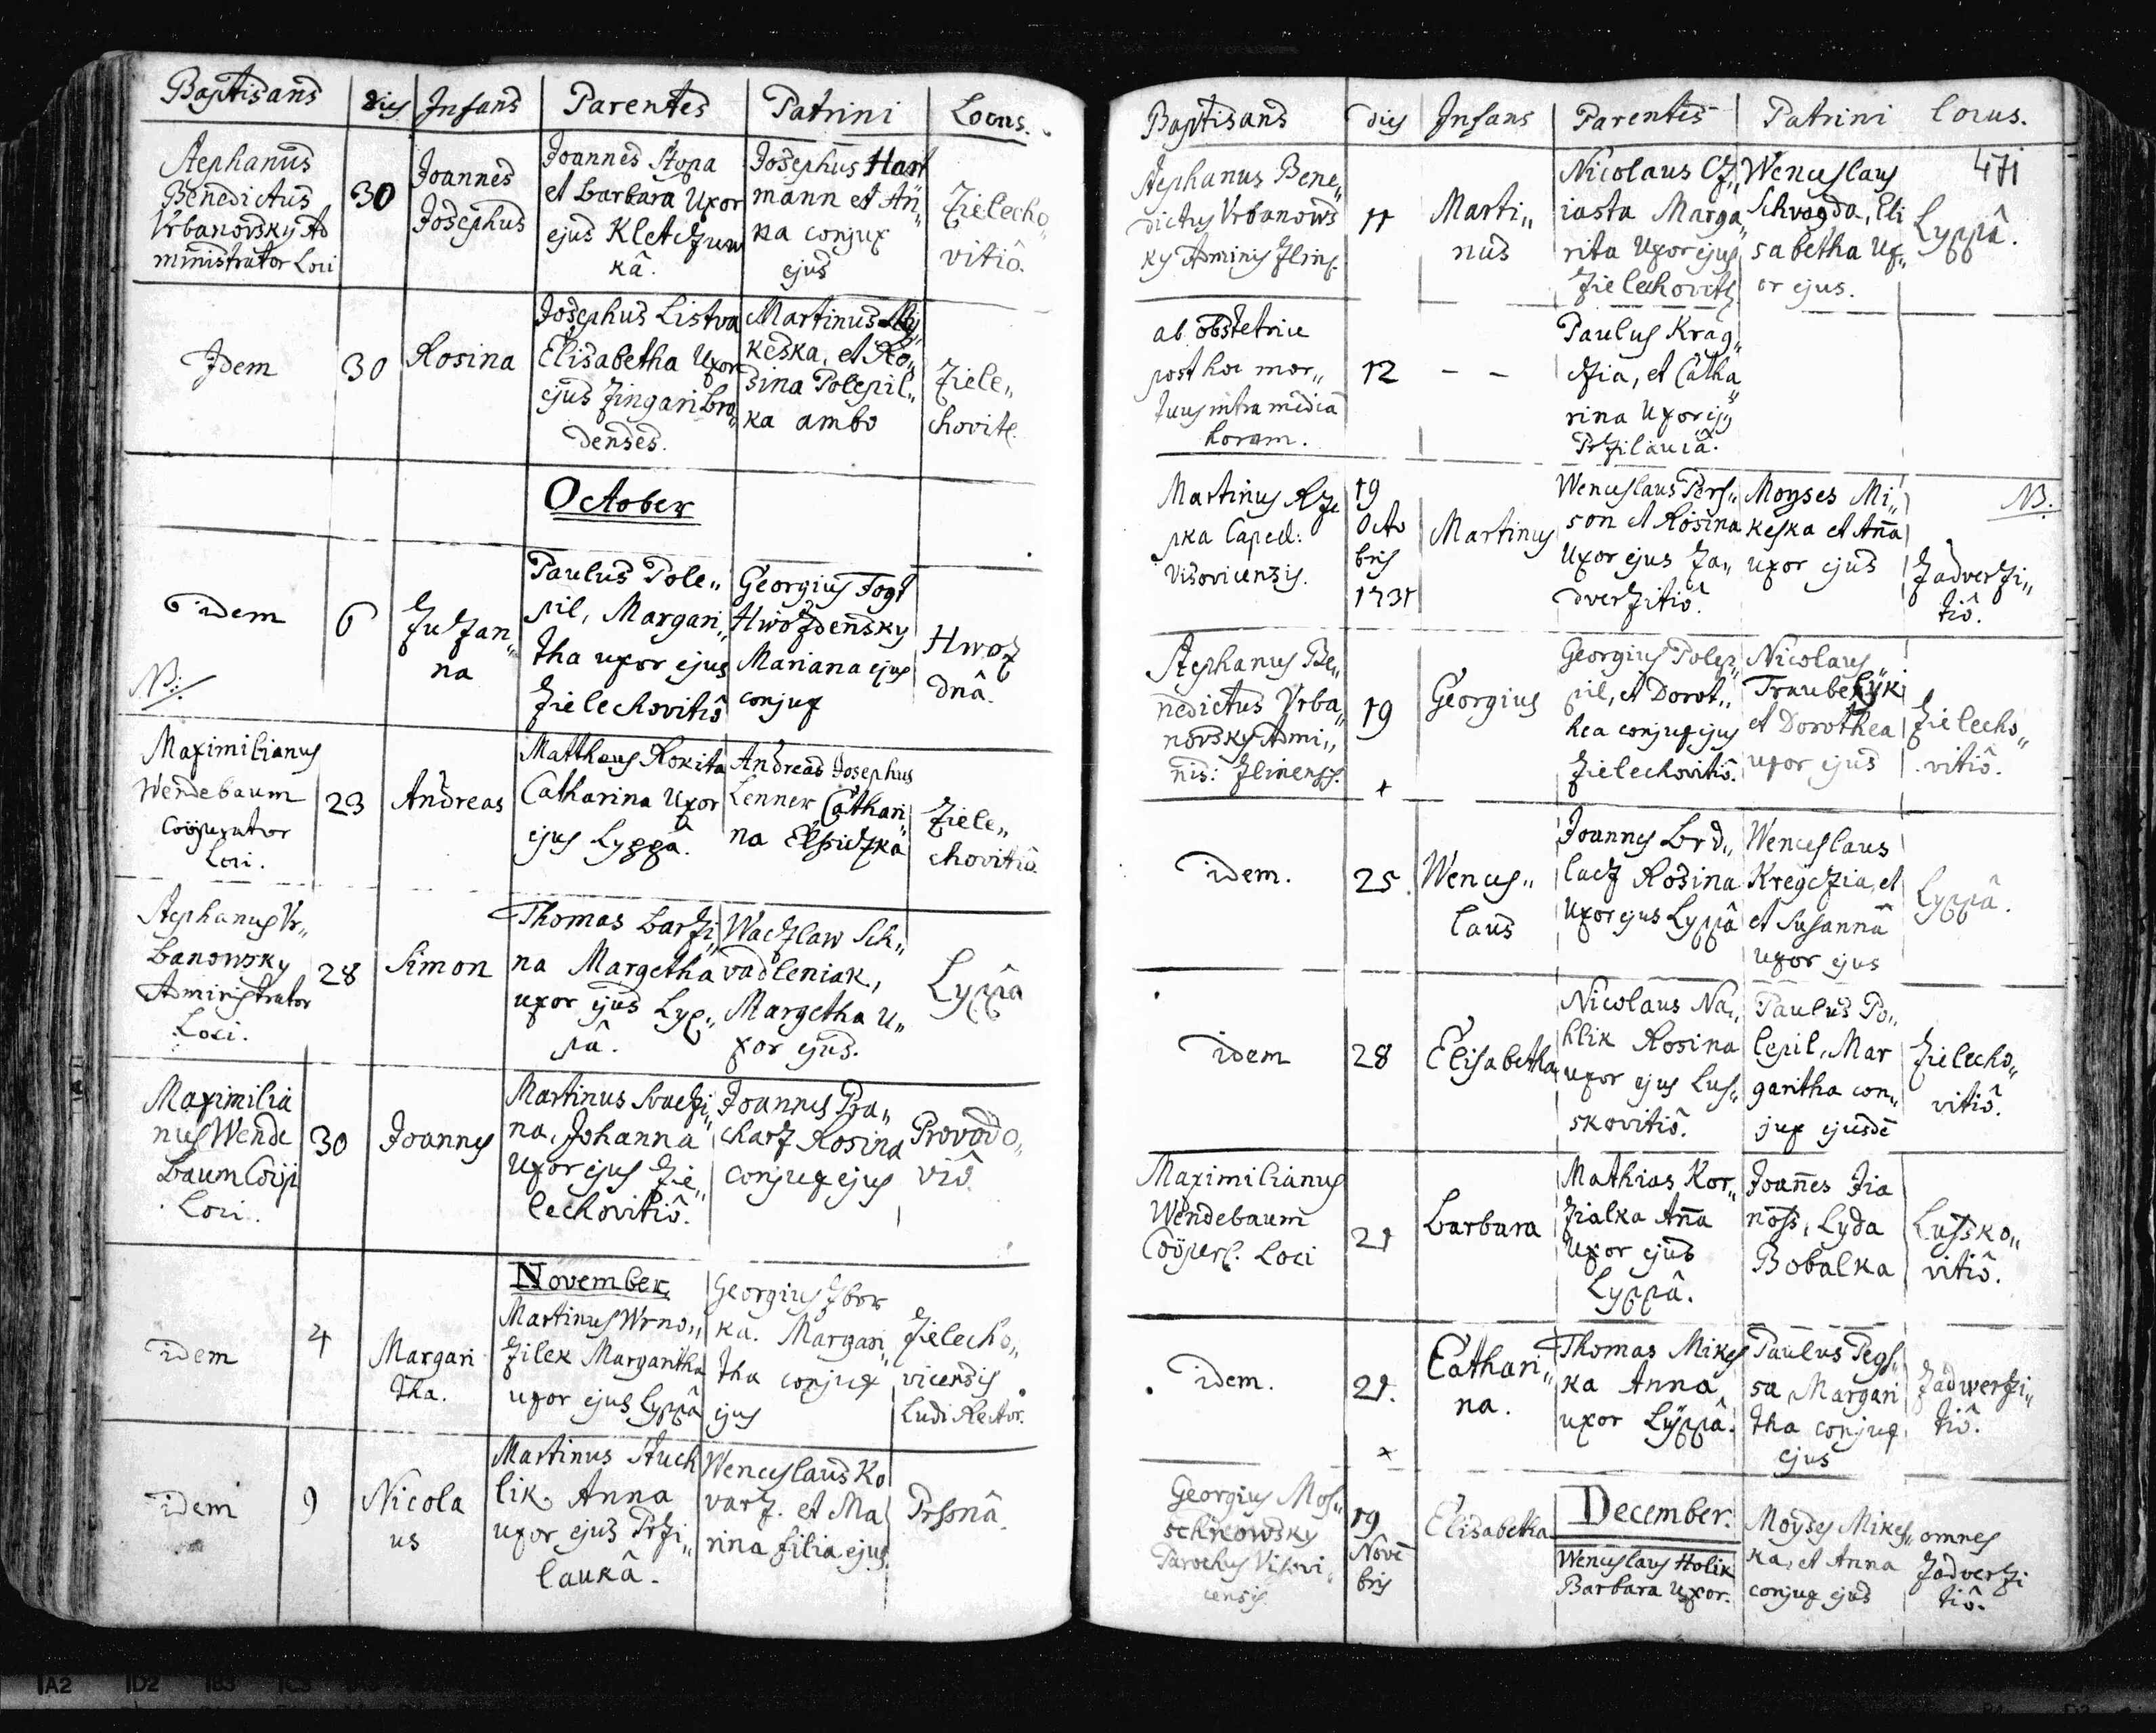 Baptisans dies Infans Parentes Patrini Locus.
Stephanus
Benedictus
Vrbanovsky Ad
ministrator Loci
30
Joannes
Josephus
Joannes Stopa
et Barbara Uxor
ejus Kletczuw
kâ.
Josephus Hart
mann et An„
na conjux
ejus
Zielecho„
vitiô.
Idem
30
Rosina
Josephus Listva
Elisabetha Uxor
ejus Zingari Bro„
denses.
Martinus Mi„
keska, et Ro„
sina Polepil„
ka ambo
Ziele„
chovit.
October
idem
NB:
6
Zuzan„
na
Paulus Pole„
pil, Margari„
tha uxor ejus
Zielechovitiô
Georgius Fogt
Hwozdensky
Mariana ejus
conjux
Hwoz
dnâ.
Maximilianus
Wendebaum
Cooperator
Loci.
23
Andreas
Matthaus Rokita
Catharina Uxor
ejus Lyppâ.
Andreas Josephus
Lenner Cathari„
na
Ziele„
chovitiô
Stephanus Vr„
banowsky
Administrator
Loci.
28
Simon
Thomas Barzi„
na Margetha
uxor ejus Lyp„
pâ.
Waczlaw Sch„
vadleniak,
Margetha U„
xor ejus.
Lyppâ
Maximilia
nus Wende
baum Coop
Loci.
30
Joannes
Martinus Svaczi„
na, Johanna
Uxor ejus Zie„
lechovitiô.
Joannes Pra„
charz Rosina
conjux ejus
Provodo„
viô.
November
idem
4
Margari
tha.
Martinus Wrno„
zilek Margaritha
uxor ejus Lyppâ
Georgius Zbor
ka. Margari„
tha conjux
ejus
Zielecho„
vicensis
Ludi Rector.
idem
9
Nicola
us
Martinus Stuch
lik, Anna
uxor ejus Przi„
laukâ.
Wenceslaus Ko
varz. et Ma
rina filia ejus.
Prsnâ.
Baptisans dies Infans Parentes Patrini Locus.
471
Stephanus Bene„
dictus Vrbanows
ky Adminis Zlins.
11
Marti„
nus
Nicolaus Cz„
iasta Marga„
rita Uxor ejus
Zielechovit
Wenceslaus
Schvagda, Eli
sabetha Ux„
or ejus.
Lyppâ.
ab obstetrice
post hoc mor„
tuus intra mediâ
horam.
12
- -
Paulus Krag„
czia, et Catha
rina Uxor ejs
Przilaucâ.
Martinus Rze
pka Capell:
Visovicensis.
19
Octo
bris
1731
Martinus
Wenceslaus Pers„
son et Rosina
Uxor ejus Za„
dverzitiô.
Moyses Mi„
keska et Anna
uxor ejus
NB.
Zadverzi„
tiô.
Stephanus Be„
nedictus Vrba„
novsky Admi„
nis: Zlinens.
19
x
Georgius
Georgius Polep„
pil, et Dorot„
hea conjux ejus
Zielechovitiô.
Nicolaus
Traubelijk
et Dorothea
uxor ejus
Zielecho„
vitiô.
idem.
25.
Wences„
laus
Joannes Brd„
lacz Rosina
Uxor ejus Lyppâ
Wenceslaus
Kregczia, et
et Susanna
uxor ejus
Lyppâ.
idem
28
Elisabetha
Nicolaus Na„
hlik Rosina
uxor ejus Lus„
skovitiô.
Paulus Po„
lepil, Mar
garitha con„
jux ejusdē
Zielecho„
vitiô.
Maximilianus
Wendebaum
Cooper. Loci
29
Barbara
Mathias Kor„
zialka Anna
Uxor ejus
Lyppâ.
Joannes Jia
noss, Lyda
Bobalka
Lussko„
vitiô.
idem.
29.
x
Cathari„
na.
Thomas Mikes
ka Anna
uxor Lyppâ.
Paulus Pegs„
sa Margari
tha conjux
ejus
Zadwerzi„
tiô.
Georgius Mos„
schnowsky
Parochus Visovi„
censis.
19
Nove
bris
Elisabetha
December.
Wenceslaus Holik
Barbara Uxor.
Moyses Mikes„
ka, et Anna
conjux ejus
omnes
Zadverzi
tiô.
A2 D2